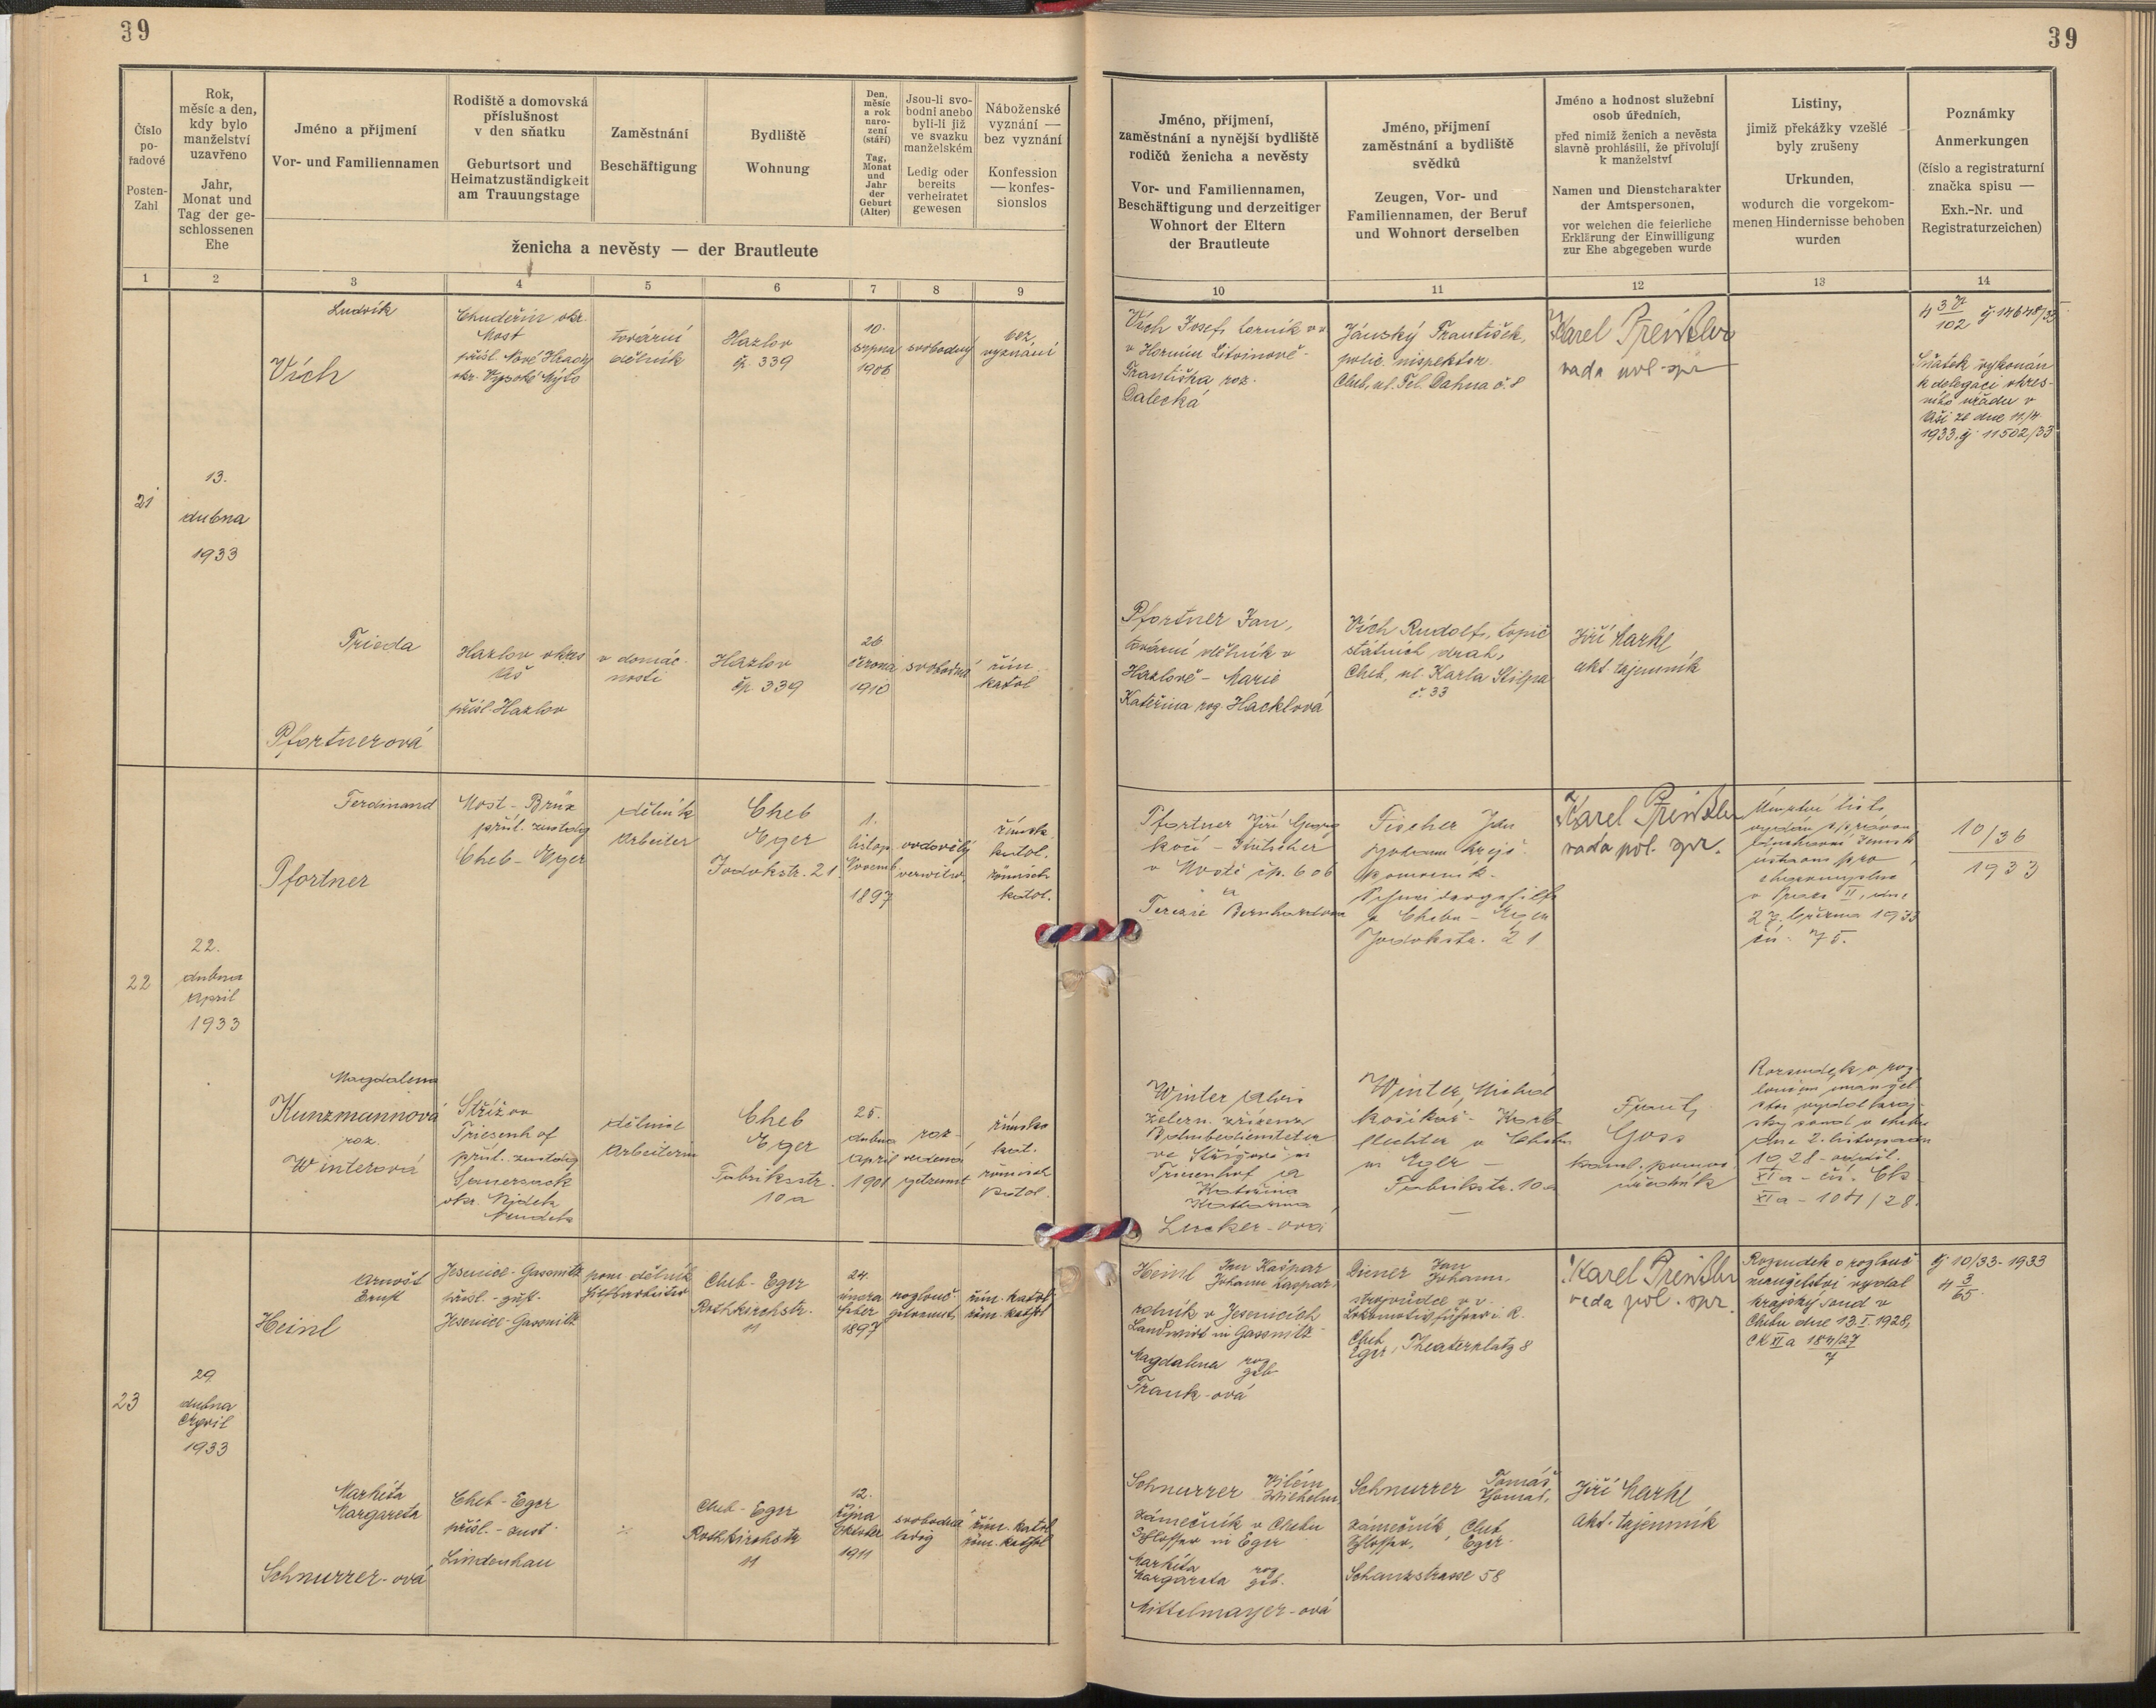 39
39
Číslo
po-
řadové
Posten-
Zahl
Rok,
měsíc a den,
kdy bylo
manželství
uzavřeno
Jahr,
Monat und
Tag der ge-
schlossenen
Ehe
Jméno a přijmení
Vor- und Familiennamen
Rodiště a domovská
příslušnost
v den sňatku
Geburtsort und
Heimatzuständigkeit
am Trauungstage
Zaměstnání
Beschäftigung
Bydliště
Wohnung
Den,
měsíc
a rok
naro-
zení
(stáří)
Tag,
Monat
und
Jahr
der
Geburt
(Alter)
Jsou-li svo-
bodni anebo
byli-li již
ve svazku
manželském
Ledig oder
bereits
verheiratet
gewesen
Náboženské
vyznání —
bez vyznání
Konfession
— konfes-
sionslos
ženicha a nevěsty — der Brautleute
Jméno, příjmení,
zaměstnání a nynější bydliště
rodičů ženicha a nevěsty
Vor- und Familiennamen,
Beschäftigung und derzeitiger
Wohnort der Eltern
der Brautleute
Jméno, přijmení
zaměstnání a bydliště
svědků
Zeugen, Vor- und
Familiennamen, der Beruf
und Wohnort derselben
Jméno a hodnost služební
osob úředních,
před nimiž ženich a nevěsta
slavně prohlásili, že přivolují
k manželství
Namen und Dienstcharakter
der Amtspersonen,
vor welchen die feierliche
Erklärung der Einwilligung
zur Ehe abgegeben wurde
Listiny,
jimiž překážky vzešlé
byly zrušeny
Urkunden,
wodurch die vorgekom-
menen Hindernisse behoben
wurden
Poznámky
Anmerkungen
(číslo a registraturní
značka spisu —
Exh.-Nr. und
Registraturzeichen)
1 2 3 4 5 6 7 8 9
10 11 12 13 14
21
13.
dubna
1933
Ludvík
Vích
Chudeřín okr.
Most
přísl. Nové Hrady
okr. Vysoké Mýto
tovární
dělník
Hazlov
čp. 339
10.
srpna
1906
svobodný
bez
vyznání
Vích Josef, horník v v
v Horním Litvínově -
Františka roz.
Dalecká
Jánský František,
polic. inspektor
Cheb, ul. Fel. Dahna č. 8
Karel Preissler
rada pol. spr.
102 čj 14648/33
Sňatek vykonán
k delegaci okres-
ního úřadu v
Aši ze dne 11/4
1933, čj. 11502/33
Frieda
Pfortnerová
Hazlov okres
Aš
přísl. Hazlov
v domác-
nosti
Hazlov
čp. 339
26
června
1910
svobodná
řím.
katol
Pfortner Jan,
tovární dělník v
Hazlově - Marie
Kateřina roz. Hacklová
Vích Rudolf, topič
státních drah,
Cheb, ul. Karla Stilpa
č. 33
Jiří Markl
akt. tajemník
22
22.
dubna
April
1933
Ferdinand
Pfortner
Most - Brüx
přísl. zustdg
Cheb - Eger
dělník
Arbeiter
Cheb
Eger
Jodokstr. 21
1.
listop.
Novemb
1897
vdovělý
verwitw.
římsk.
katol.
römisch
katol.
Pfortner Jiří Georg
kočí - Kutscher
v Mostě čp. 606
a
Terezie Bernhardova
Fischer Jan
a Chebu - Eger
Jodokstr. 21
Karel Preissler
rada pol. spr.
Úmrtní list
ústavu pro
v Praze II, dne
27. března 1933
čís. 75.
10/36
1933
Magdalena
Kunzmannová
roz.
Winterová
Střížov
Triesenhof
přísl. zustdg
Sauersack
okr. Nejdek
Neudek
dělnice
Arbeiterin
Cheb
Eger
Fabriksstr.
10a
25.
dubna
April
1901
roz-
vedená
getrennt
římsko
kat.
römisch
katol.
Winter Alois
železn. zřízenec
Bahnbediensteter
ve Střížově in
Triesenhof a
Kateřina
Katharina
Lucker-ová
Winter, Michal
košíkář - Korb-
flechter v Chebu
in Eger -
Fabrikstr. 10a
Frant.
Goss
kancl. pomoc.
úředník
Rozsudek o roz-
loučení manžel-
ství vydal kraj-
ský soud v Chebu
dne 2. listopadu
1928 - odděl.
XIa - čís. Ck
XIa - 104/28.
23
29.
dubna
April
1933
Arnošt
Ernst
Heinl
Jesenice - Gassnitz
přísl. - zust.
Jesenice - Gassnitz
pom. dělník
Hilfsarbeiter
Cheb - Eger
Rothkirchstr.
11
24.
února
Feber
1897
rozlouč.
getrennt
řím. katol.
röm. kathol
Heinl Jan Kašpar
Johann Kaspar,
rolník v Jesenicích
Landwirt in Gassnitz
Magdalena roz
geb
Frank-ová
Diener Jan
Johann,
strojvůdce v v.
Lokomotivführer i R.
Cheb
Eger, Theaterplatz 8
Karel Preissler
rada pol. spr.
Rozsudek o rozlouč
manželství vydal
krajský soud v
Chebu dne 13.I.1928,
Ck XIa 184/27
7
čj 10/33-1933
4 3
65
Markéta
Margareta
Schnurrer-ová
Cheb - Eger
přísl. - zust.
Lindenhau
Cheb - Eger
Rothkirchstr
11
12.
října
Oktober
1911
svobodná
ledig
řím. katol
röm. kathol
Schnurrer Vilém
Wilhelm,
zámečník v Chebu
Schlosser in Eger
Markéta roz
Margareta geb.
Mittelmayer-ová
Schnurrer Tomáš
Thomas,
zámečník, Cheb
Schlosser, Eger
Schanzstrasse 58
Jiří Markl
akt. tajemník